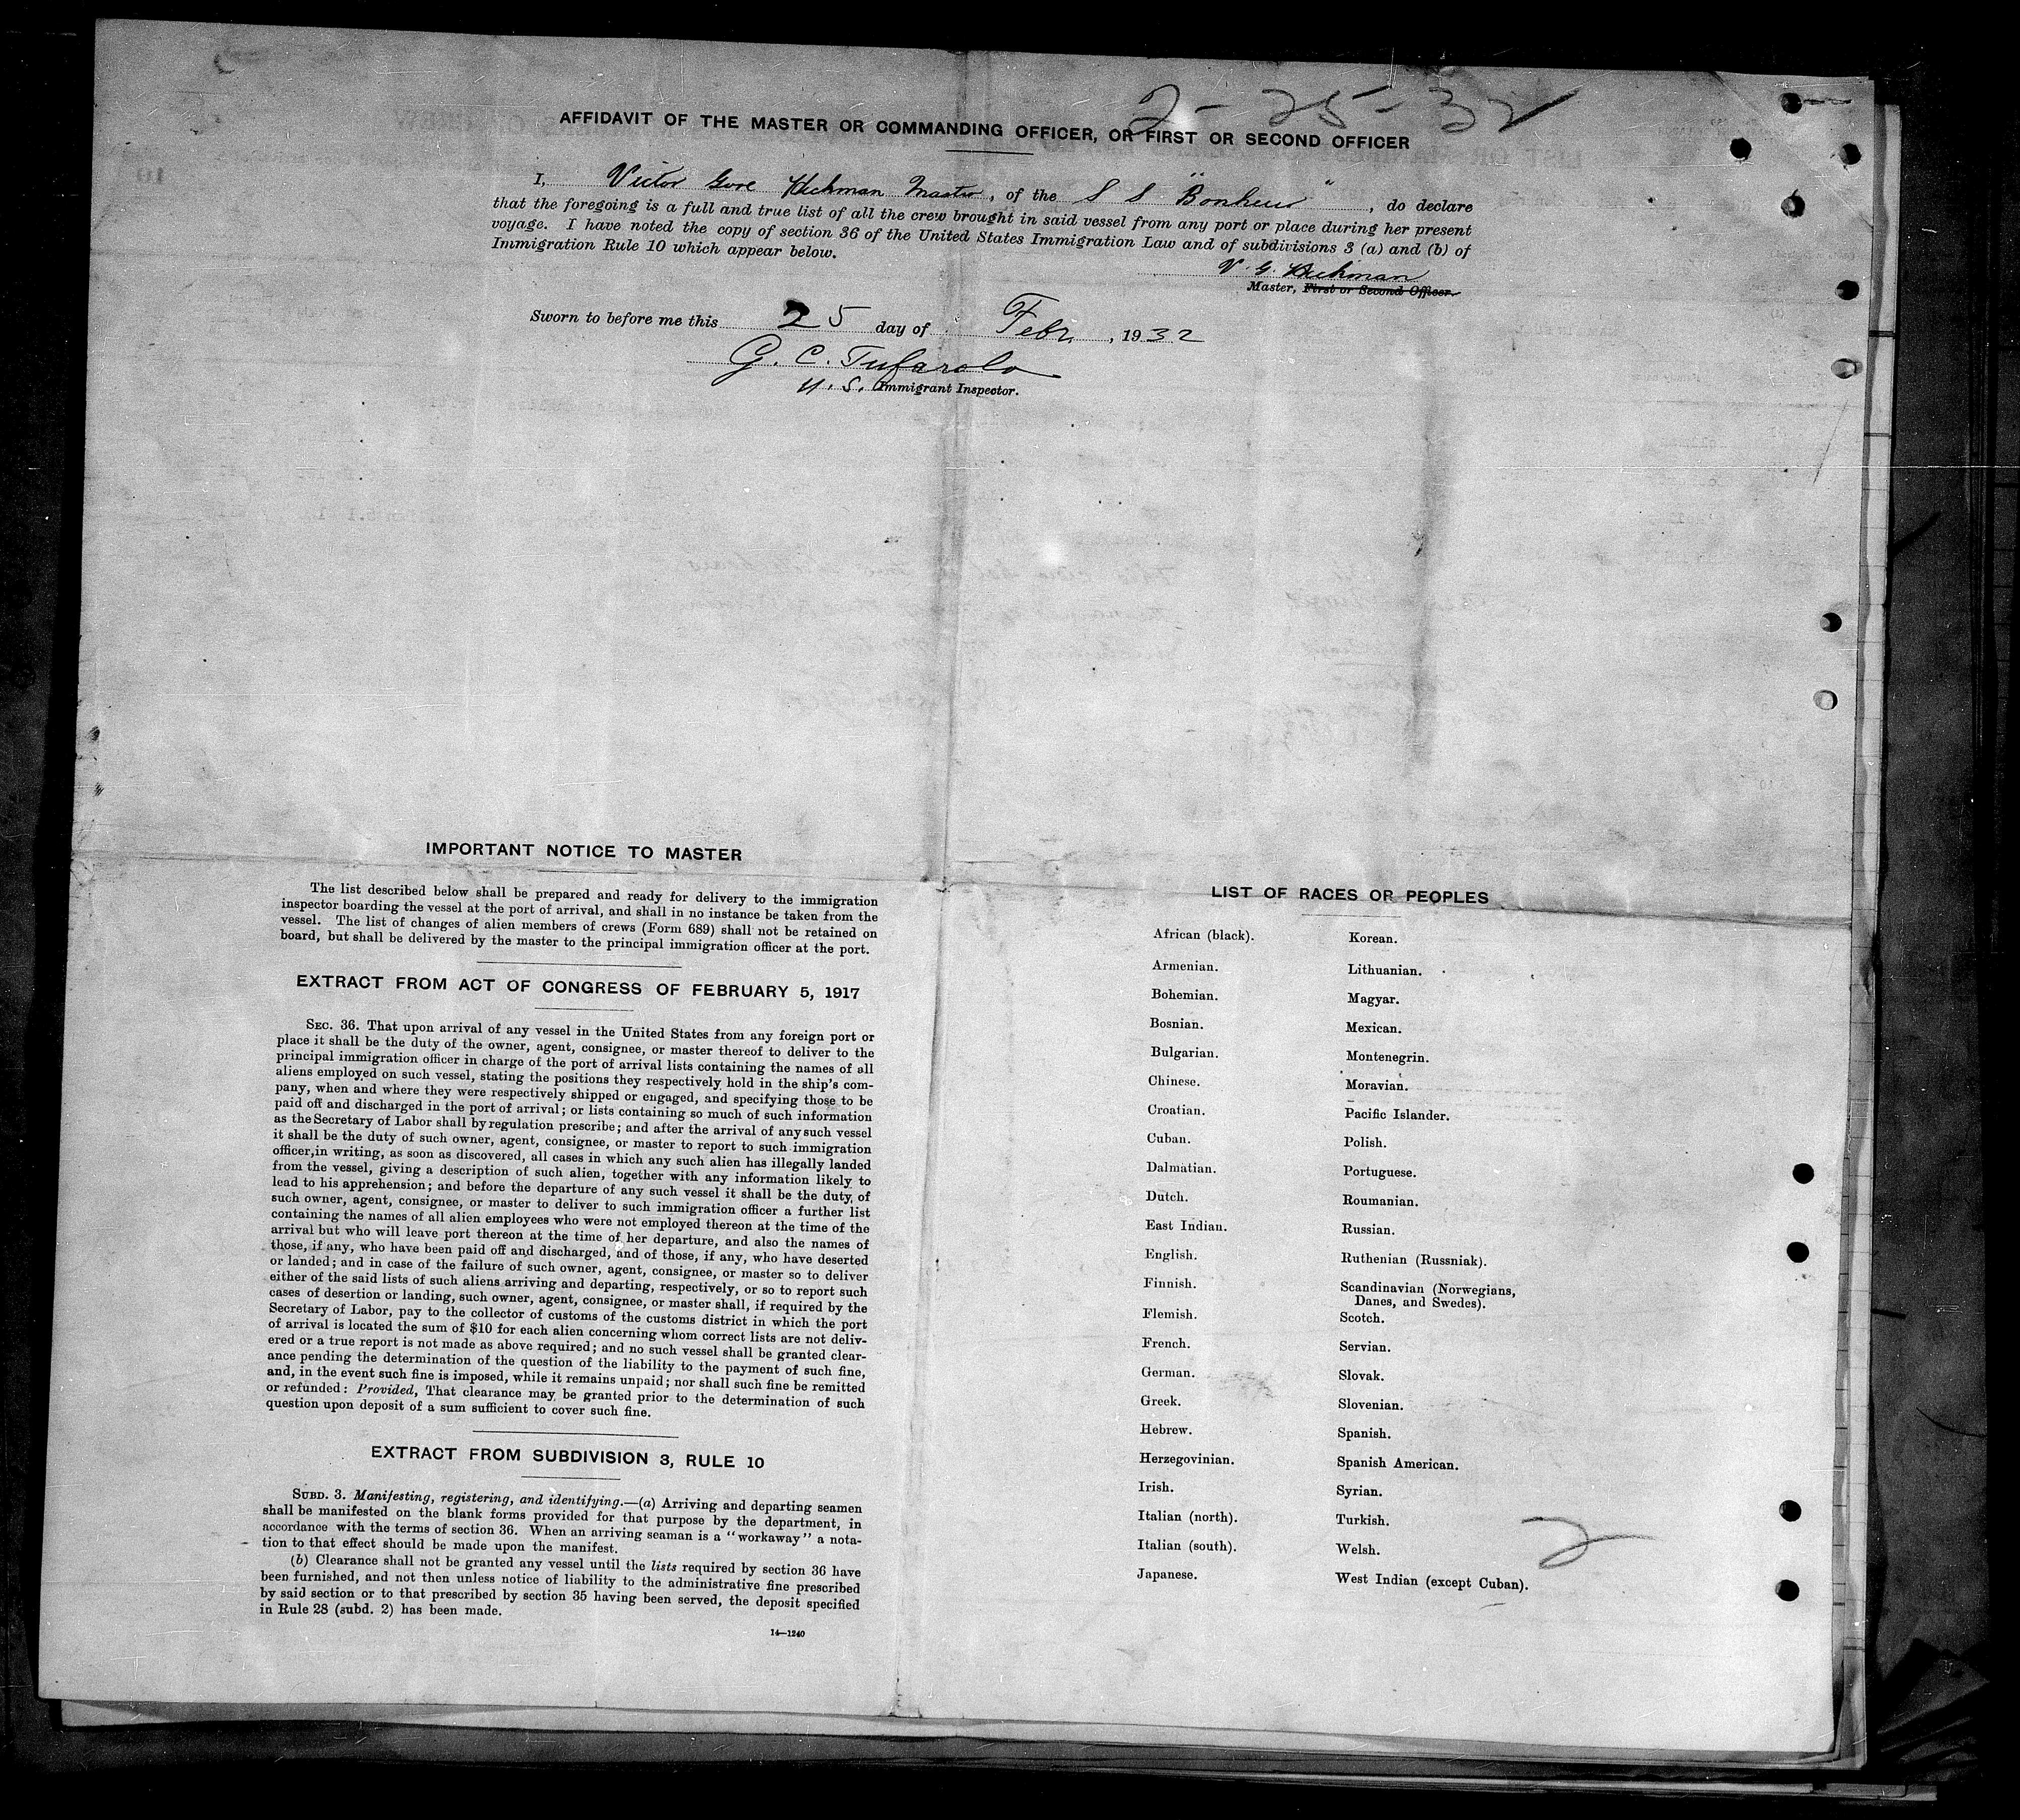 2-25-32
AFFIDAVIT OF THE MASTER OR COMMANDING OFFICER, OR FIRST OR SECOND OFFICER
I, Victor Gore Hickman Master, of the S S "Bonheur", do declare
that the foregoing is a full and true list of all the crew brought in said vessel from any port or place during her present
voyage. I have noted the copy of section 36 of the United States Immigration Law and of subdivisions 3 (a) and (b) of
Immigration Rule 10 which appear below.
V. G. Hickman
Master, First or Second Officer.
Sworn to before me this 25 day of Febr, 1932
G. C. Tufarolo
U. S. Immigrant Inspector.
IMPORTANT NOTICE TO MASTER
The list described below shall be prepared and ready for delivery to the immigration
inspector boarding the vessel at the port of arrival, and shall in no instance be taken from the
vessel. The list of changes of alien members of crews (Form 689) shall not be retained on
board, but shall be delivered by the master to the principal immigration officer at the port.
EXTRACT FROM ACT OF CONGRESS OF FEBRUARY 5, 1917
SEC. 36. That upon arrival of any vessel in the United States from any foreign port or
place it shall be the duty of the owner, agent, consignee, or master thereof to deliver to the
principal immigration officer in charge of the port of arrival lists containing the names of all
aliens employed on such vessel, stating the positions they respectively hold in the ship's com-
pany, when and where they were respectively shipped or engaged, and specifying those to be
paid off and discharged in the port of arrival; or lists containing so much of such information
as the Secretary of Labor shall by regulation prescribe; and after the arrival of any such vessel
it shall be the duty of such owner, agent, consignee, or master to report to such immigration
officer, in writing, as soon as discovered, all cases in which any such alien has illegally landed
from the vessel, giving a description of such alien, together with any information likely to
lead to his apprehension; and before the departure of any such vessel it shall be the duty of
such owner, agent, consignee, or master to deliver to such immigration officer a further list
containing the names of all alien employees who were not employed thereon at the time of the
arrival but who will leave port thereon at the time of her departure, and also the names of
those, if any, who have been paid off and discharged, and of those, if any, who have deserted
or landed; and in case of the failure of such owner, agent, consignee, or master so to deliver
either of the said lists of such aliens arriving and departing, respectively, or so to report such
cases of desertion or landing, such owner, agent, consignee, or master shall, if required by the
Secretary of Labor, pay to the collector of customs of the customs district in which the port
of arrival is located the sum of $10 for each alien concerning whom correct lists are not deliv-
ered or a true report is not made as above required; and no such vessel shall be granted clear-
ance pending the determination of the question of the liability to the payment of such fine,
and, in the event such fine is imposed, while it remains unpaid; nor shall such fine be remitted
or refunded: Provided, That clearance may be granted prior to the determination of such
question upon deposit of a sum sufficient to cover such fine.
EXTRACT FROM SUBDIVISION 3, RULE 10
SUBD. 3. Manifesting, registering, and identifying.—(a) Arriving and departing seamen
shall be manifested on the blank forms provided for that purpose by the department, in
accordance with the terms of section 36. When an arriving seaman is a "workaway" a nota-
tion to that effect should be made upon the manifest.
(b) Clearance shall not be granted any vessel until the lists required by section 36 have
been furnished, and not then unless notice of liability to the administrative fine prescribed
by said section or to that prescribed by section 35 having been served, the deposit specified
in Rule 28 (subd. 2) has been made.
14—1240
LIST OF RACES OR PEOPLES
African (black).
Armenian.
Bohemian.
Bosnian.
Bulgarian.
Chinese.
Croatian.
Cuban.
Dalmatian.
Dutch.
East Indian.
English.
Finnish.
Flemish.
French.
German.
Greek.
Hebrew.
Herzegovinian.
Irish.
Italian (north).
Italian (south).
Japanese.
Korean.
Lithuanian.
Magyar.
Mexican.
Montenegrin.
Moravian.
Pacific Islander.
Polish.
Portuguese.
Roumanian.
Russian.
Ruthenian (Russniak).
Scandinavian (Norwegians,
Danes, and Swedes).
Scotch.
Servian.
Slovak.
Slovenian.
Spanish.
Spanish American.
Syrian.
Turkish.
Welsh.
West Indian (except Cuban).
2